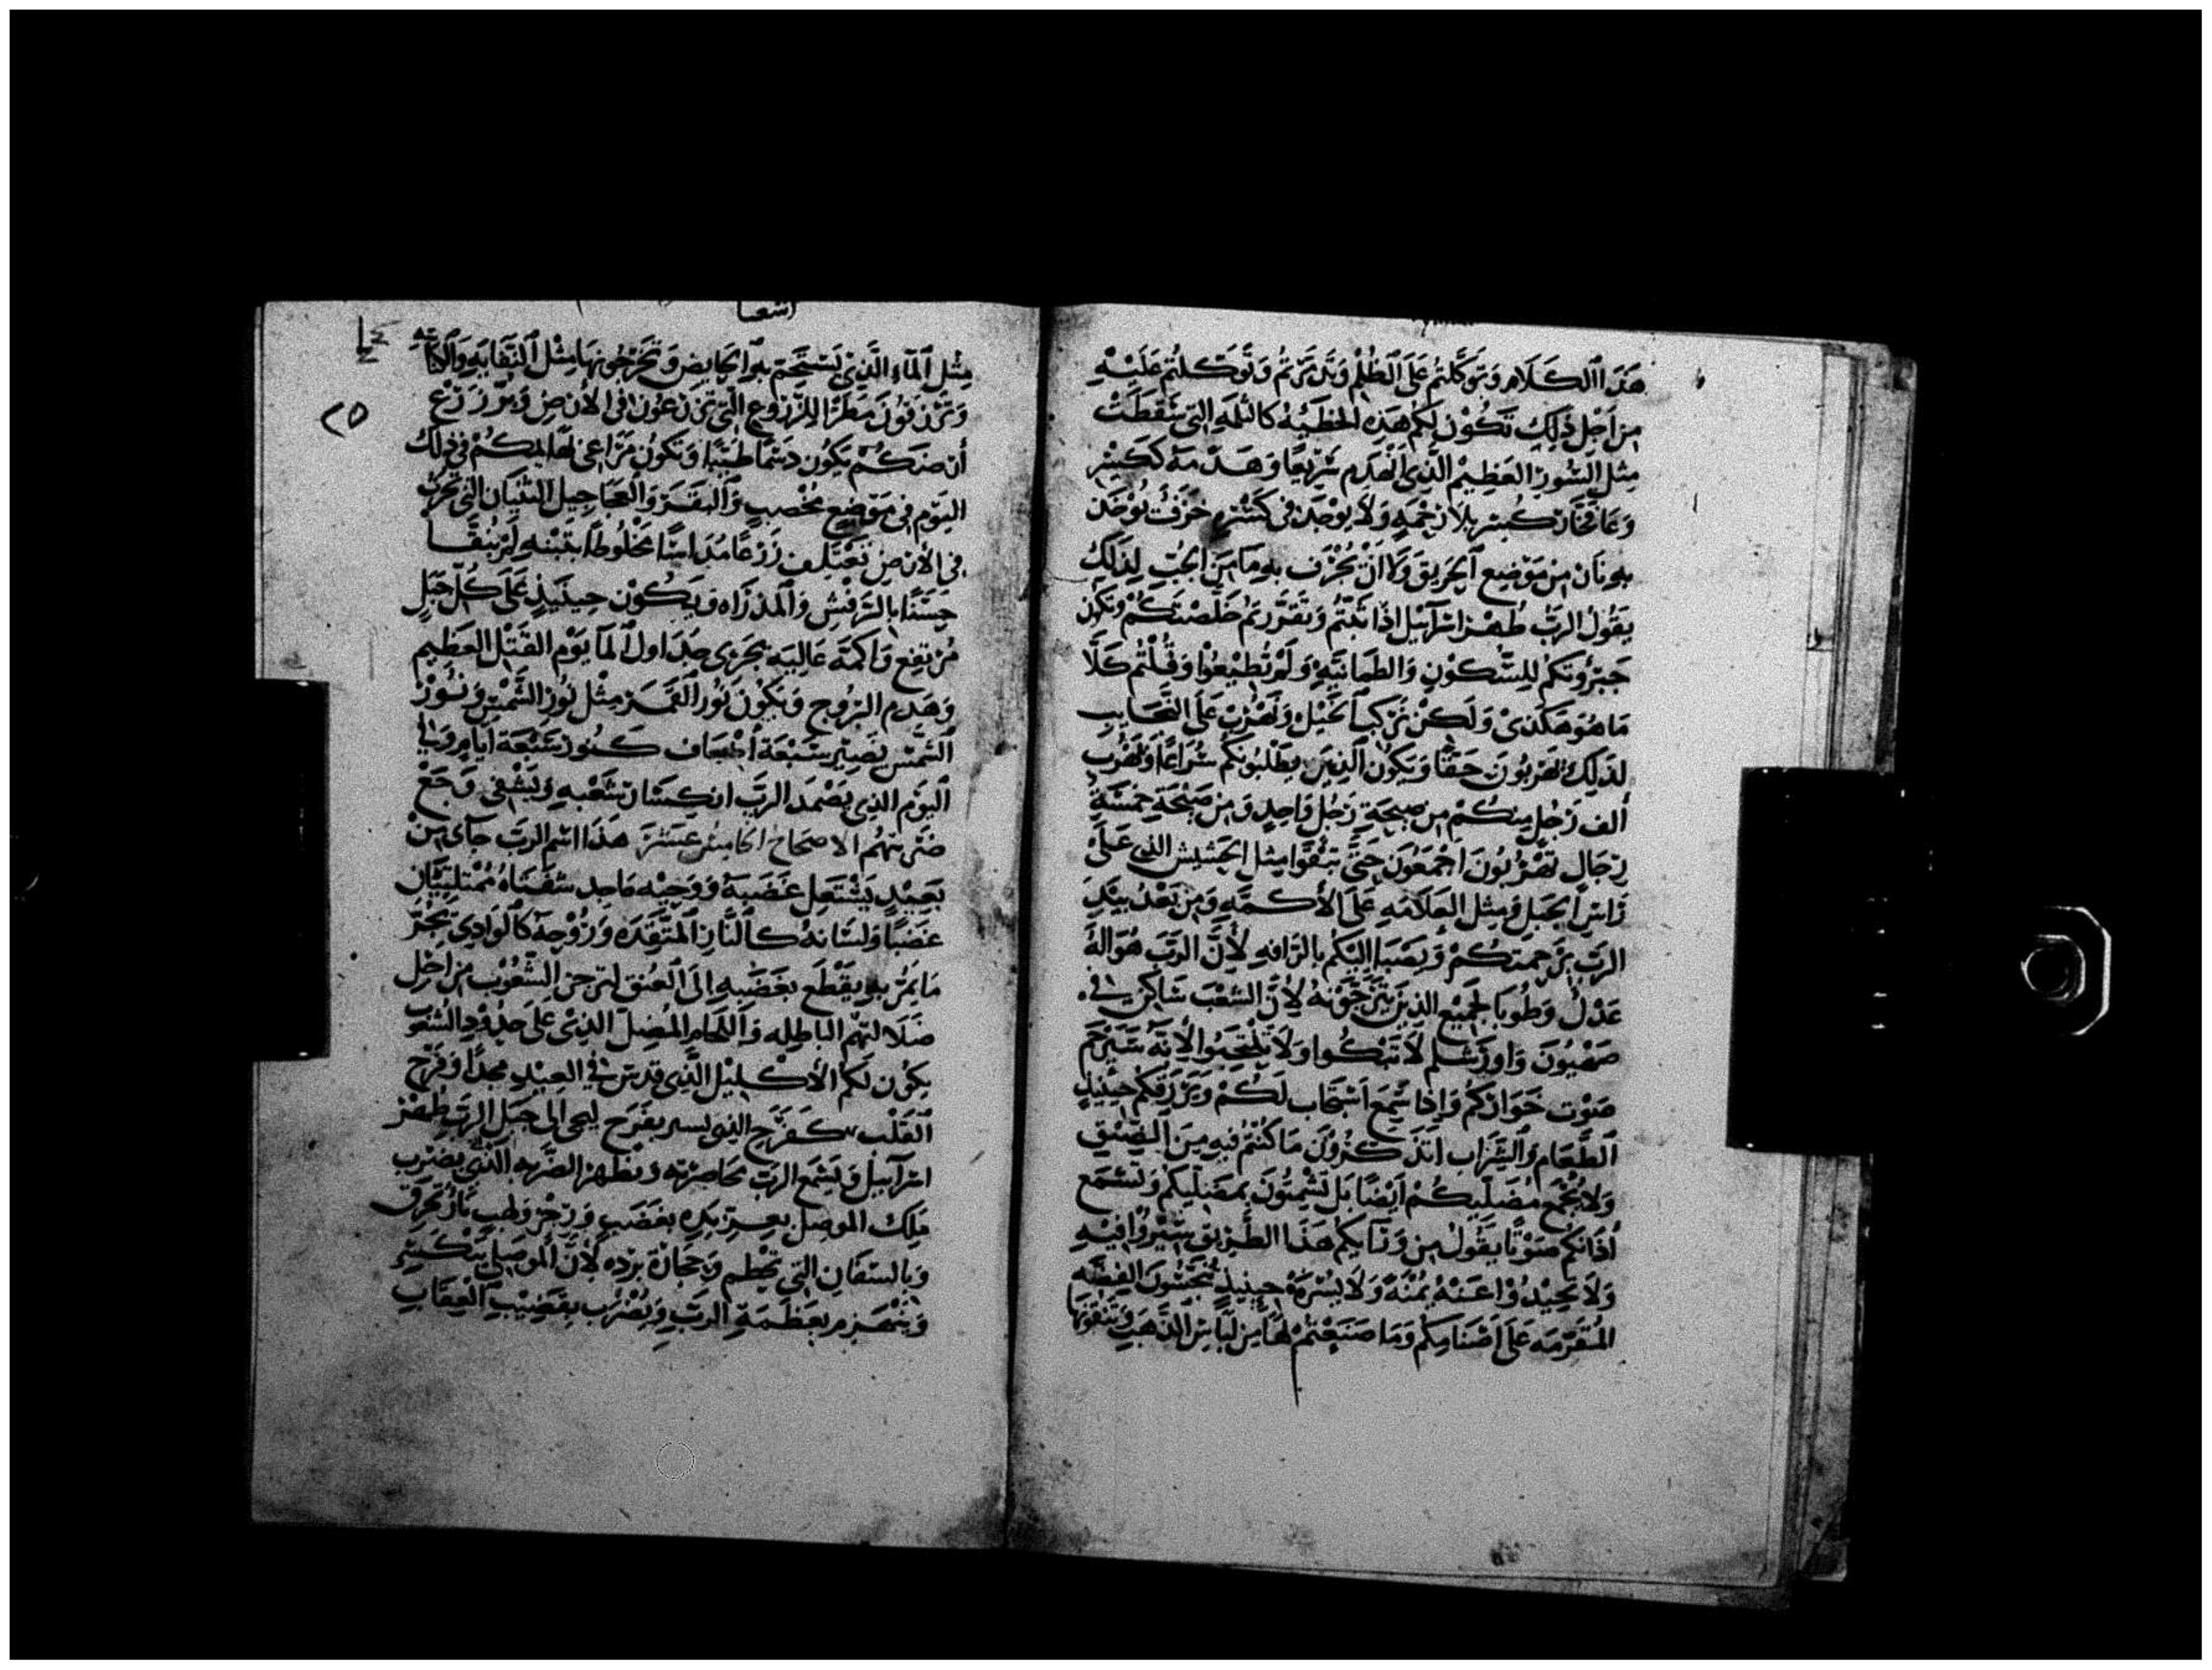 هَذَا الكَلَام وَتوَكَّلتُم عَلَى الظُلْمِ وَتَذَمَّرْتُمْ وَتَوَكَلتُم عَلَيْهِ
مِن اَجْلِ ذَلِكَ تَكُوْن لَكُم هَذِهِ الخَطيَّةُ كَالثلمَهِ التِى سَقَطَتْ
مِثْلِ السُّورِ العَظِيمْ الَّذِى انْهَدَم سَرِيْعًا وَهَدمَهُ ككَسْرِ
بِهِ نَار مِن مَوْضِع الحَرِيق وَلَا اَنْ يُغْرَف بِهِ مَا مِنَ الجُبِّ لِذَلَكُ
يَقُولُ الرَبُّ طُهْر اِسْرَائِيل اِذَا تبْتُم وَتَقَرَّرتم خَلصْتَكُمْ وَتَكُن
جَبَرُوتكُم لِلسُّكُونِ وَالطمَانيَّهِ وَلَمْ تُطِيْعُوا وَقُلْتُم كَلَّا
مَا هُوَ هَكَذىْ وَلَكِنْ نَرْكب الخَيْل وَنَهْرُب عَلَى النَّجَايِب
لِذَلِكَ تَهرُبُونَ حَقًّا وَيَكُون الَّذِيْنَ يطْلبُونكُم سُرَاعًا وَيَهْرُب
اَلف رَجُل مِنكُمْ مِن صيحَةِ رَجُل وَاحِدٍ وَمِن صَيْحَةِ خمْسَةِ
رِجَالٍ تَهْرُبُونَ اجْمَعُونَ حَتَّى تَبْقَوا مِثل الحَشِيش الذِى عَلَى
رَاسِ الجَبل وَمِثْلَ العَلَامَهِ عَلَى الأَكمَّهِ وَمِن بَعْدُ يبْتَدِ
الرَب يَرْحَمتكُمْ وَيَصْبَا اليَكُم بِالرَّافَهِ لأَنَّ الرَبَّ هُوَ الهُ
عَدْلُ وَطُوبَا لِجَميْع الذِيْنَ يَتَرَجَّوْنهُ لأَنَّ الشعْبَ سَاكِن فِى
صَهْيُونَ وَاورَشَلم لَا تَبْكُوا وَلَا تَنْتَحِبُوا لِأَنَّه سَيَرْحَم
صَوْت خُوَارَكُم وَاِذَا سَمِعَ اسْتَجَاب لَكُمْ وَيَرْزقكُم حِيْنَيِذٍ
الطَّعَام وَالشَّرَاب اتَذْكُرُونَ مَا كُنْتُمْ فيهِ مِنَ الضِيْقِ
وَلَا يُجْمَع مُضِلّيكُمْ اَيْضًا بَل تَشْمتُونَ بمضلّيكُم وَتَسْمَع
اُذَانكُم صَوْتًا يَقُولُ مِن وَرَايكُم هَذَا الطَّرِيْق سِيْرُوا فيْهِ
وَلَا تَحِيْدُوْا عَنْهُ يمْنَةً وَلَا يُسْرَةً حِينَيِذٍ تُنَجّسُونَ الفِضَّه
المُقَرَّمَه عَلَى اصْنَامِكُم وَمَا صَنَعْتُمْ لَهَا مِن لِبَاسِ الذَّهَبِ وَتَنقُوْنهَا
اشعيا
٢٥
مِثْل المَاءِ الَّذِىْ تَسْتَحِمّ بِهِ الحَايِض وَتُخْرِجُونهَا مِثْل النفَايهِ وَالكآبَه
وَتُرْزَقُونَ مَطَرًا لِلزُرُوع التِى تَزْرَعُونَ فى الأَرْضِ وَيُرْزَ زَرْع
أَرْضكُمْ يَكُون دَسَمًا طَيّبًا وَتَكُون مَرَاعِى لبهَايمكُمْ فِى ذَلكَ
اليَوم فِى مَوْضِع مُخْصِبٍ وَالبَقَر وَالعَجَاجِيل الثِيرَان التِى تَحْرُث
فِى الأَرْضِ تَعْتَلِف زَرْعًا مُدَاسًا مَخْلُوطًا بتبْنهِ لَمْ يُنَقَّا
حَسَنًا بالرَّفْشِ وَالمذرَاه وَيَكُوْن حِيْنَيذٍ عَلَى كُلّ جَبَلٍ
مُرْتفِع وَاَكَمَة عَالِيَه تجْرِى جَدَاول المَا يَوْم القَتْل العَظِيم
وَهَدم البُروج وَيَكُوْن نُور القَمَر مِثْل نُور الشَّمْس وَنُورْ
الشَّمْس يَصِيْر سَبْعَة اَضْعَاف كَنُور سَبْعَة اَيَّامٍ وَفِى
اليَوْم الذِى يَضْمد الرَبّ انكِسَار شَعْبهِ وَيشْفِى وَجَعْ
ضَرْبتِهُم الاصحَاح الخامِسْ عَشَرَ هَذَا اسْم الرَبّ جَآى مِنْ
بَعِيْدٍ يَشْتَعِل غَضَبهُ وَوَجْهُه مَاجِد شفَتَاهُ مُمْتَليَتَان
غضَبًا وَلسَانهُ كَالنَّارِ المُتَّقِدَه وَرُوْحهُ كَالوَادِى يَجْرُ
مَا يَمُرّ بهِ وَيقْطَع بغَضَبِهِ اِلَى العُنق لِيَرجز الشّعُوْب مِن اَجْل
ضَلَالتِهُم الباطِله وَاللجَام المُضِلّ الذِىْ عَلَى خدُوْد الشُعوب
يَكُوْن لَكُم الأُكلِيْل الَّذِى قدّس فِى العِيْدِ مجدًا وَفَرَح
القَلْب كَفَرَحِ الذى يسير بفَرَح ليجى الى جَبَل الرَب طهْر
اِسْرَآييل وَيُسْمع الرَبّ
مَلِك الموصل بعِزّ يَدِهِ بغضَبٍ وَرِجْزٍ وَلهيب نَارٍ تحْرِق
التِى تحطّم وَحِجَارَة برْده لأَنَّ الموصلى يَنْكَسِر
وَيَنْهَزم بعَظَمَةِ الرَبِّ وَيُضْرَب بقَضِيْبِ العِقَابِ